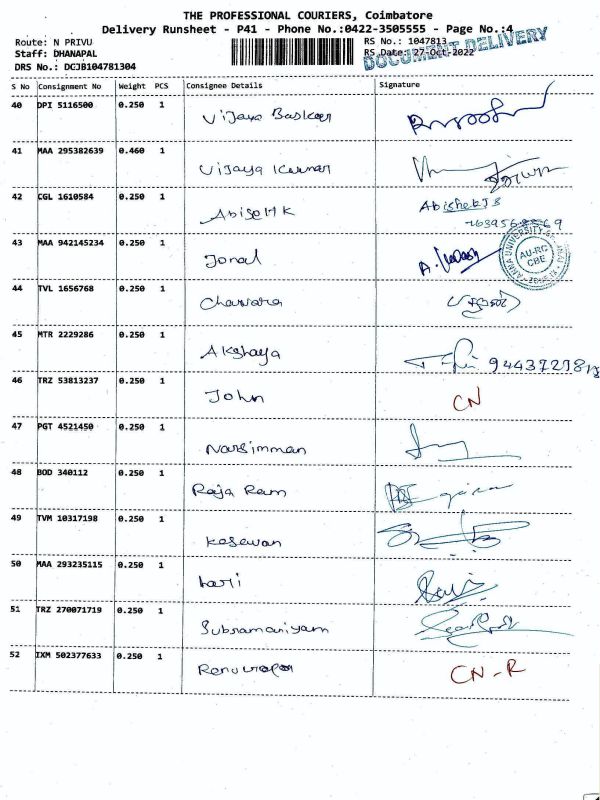 THE PROFESSIONAL COURIERS, Coimbatore
Delivery Runsheet - P41 - Phone No.:0422-3505555 - Page No.:4
Route: N PRIVU RS No.: 1047813
Staff: DHANAPAL RS Date: 27-Oct-2022
DOCUMENT DELIVERY
DRS No.: DCJB104781304
S No Consignment No Weight PCS Consignee Details Signature
40 DPI 5116500 0.250 1 Vijaya Baskar
41 MAA 295382639 0.460 1 Vijaya Kumar
42 CGL 1610584 0.250 1 Abishek J S
43 MAA 942145234 0.250 1 Jonal
ANNA UNIVERSITY
AU-RC
CBE
44 TVL 1656768 0.250 1
45 MTR 2229286 0.250 1 Akshaya
46 TRZ 53813237 0.250 1 John CN
47 PGT 4521450 0.250 1 Narsimman
48 BOD 340112 0.250 1 Raja Ram
49 TVM 10317198 0.250 1 Kesavan
50 MAA 293235115 0.250 1 hari
51 TRZ 270071719 0.250 1 Subramaniyam
52 IXM 502377633 0.250 1 CN-R